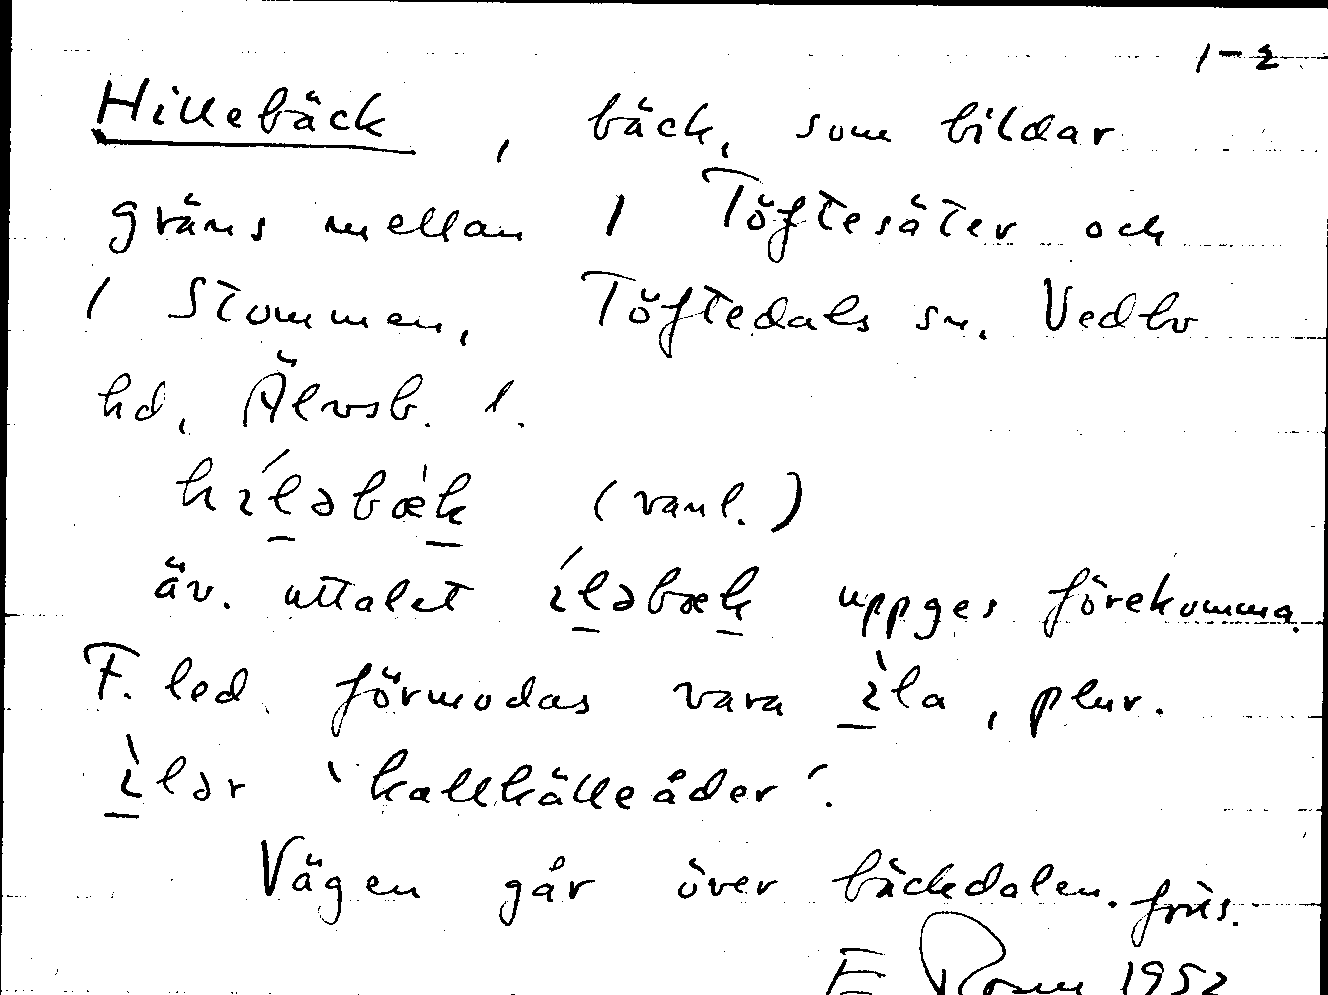 1-2
Hillebäck, bäck, som bildar
gräns mellan 1 Töftesäter och
1 Stommen, Töftedals sn. Vedbo
hd, Älvsb. l.
hi̍ləbæ̍k (vanl.)
äv. uttalet íləbæk uppges förekomma.
F. led förmodas vara ìla, plur.
ìlər 'kallkälleåder'.
Vägen går över bäckdalen. forts.
E Rosen 1952